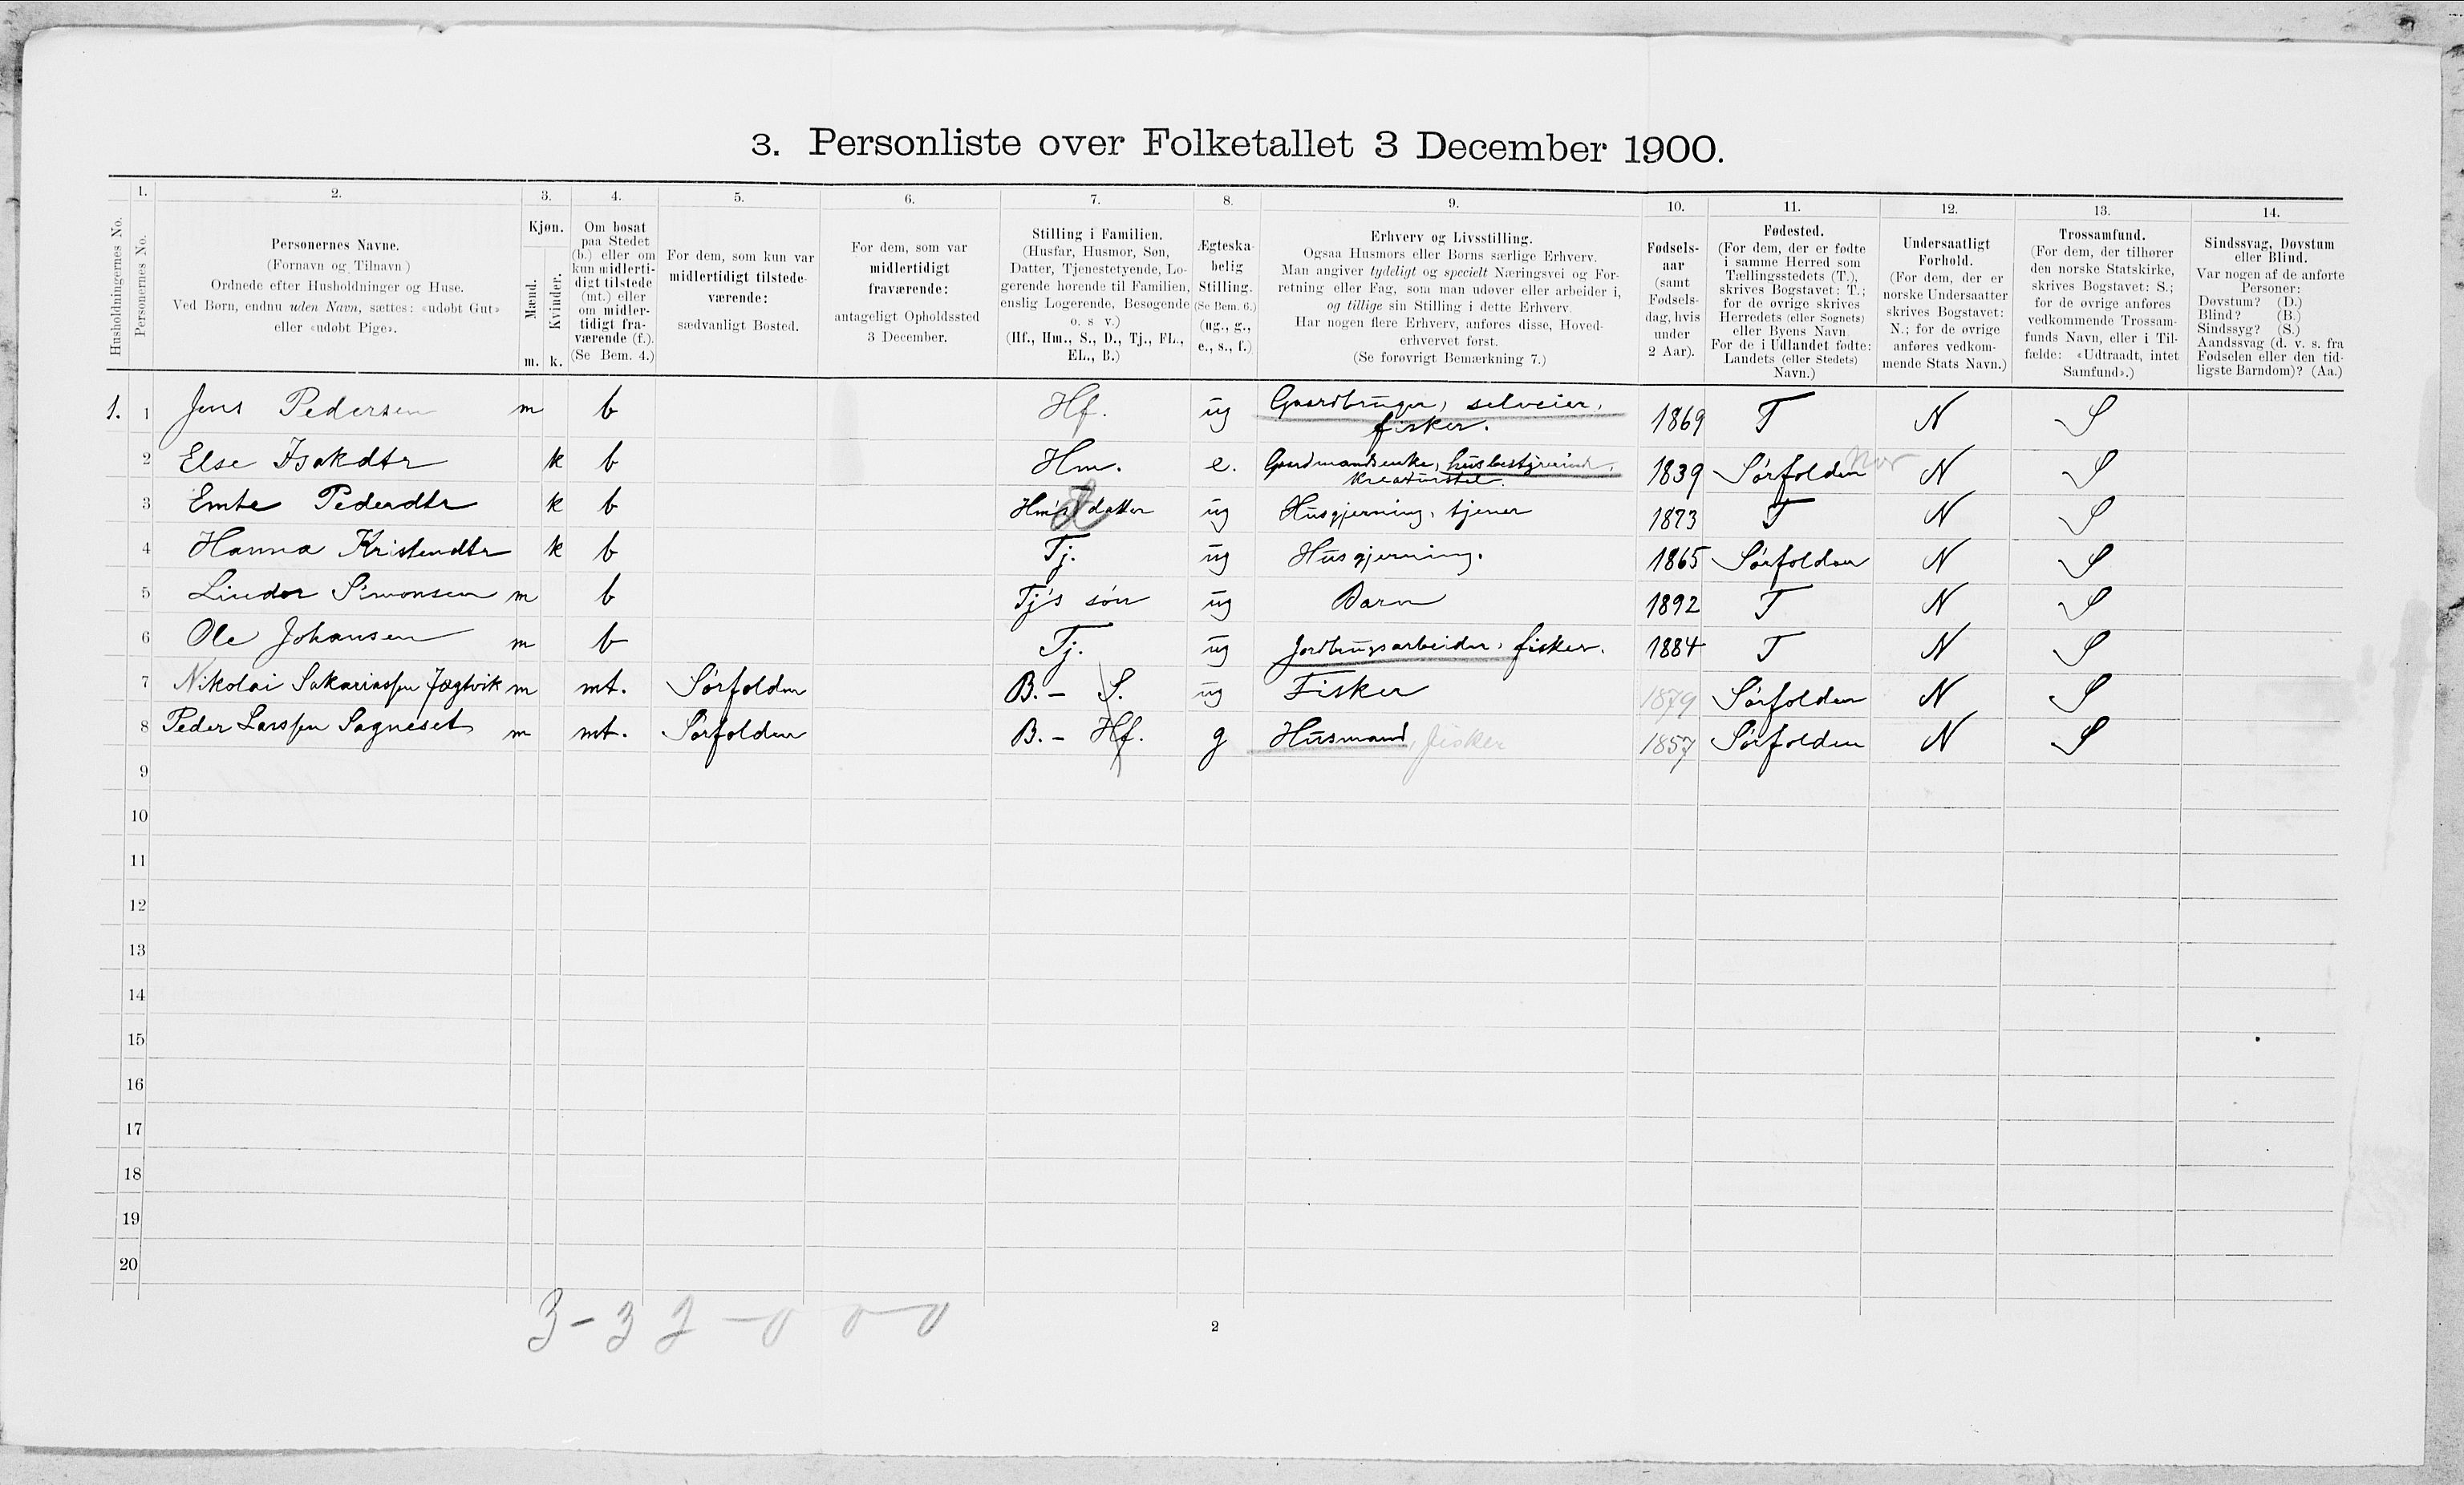 3. Personliste over Folketallet 3 December 1900.
Husholdningernes No.
1.
Personernes No.
2.
Personernes Navne.
(Fornavn og Tilnavn)
Ordnede efter Husholdninger og Huse.
Ved Børn, endnu uden Navn, sættes: «udøbt Gut»
eller «udøbt Pige».
3.
Kjøn.
Mænd.
Kvinder.
m. k.
4.
Om bosat
paa Stedet
(b.) eller om
kun midlerti-
digt tilstede
(mt.) eller
om midler-
tidigt fra-
værende (f.).
(Se Bem. 4.)
5.
For dem, som kun var
midlertidigt tilstede-
værende:
sædvanligt Bosted.
6.
For dem, som var
midlertidigt
fraværende:
antageligt Opholdssted
3 December.
7.
Stilling i Familien.
(Husfar, Husmor, Søn,
Datter, Tjenestetyende, Lo-
gerende hørende til Familien,
enslig Logerende, Besøgende
o. s v.)
(Hf., Hm., S., D., Tj., FL.,
EL., B.)
8.
Ægteska-
belig
Stilling.
(Se Bem. 6.)
(ug., g.,
e., s., f.)
9.
Erhverv og Livsstilling.
Ogsaa Husmors eller Børns særlige Erhverv.
Man angiver tydeligt og specielt Næringsvei og For-
retning eller Fag, som man udøver eller arbeider i,
og tillige sin Stilling i dette Erhverv.
Har nogen flere Erhverv, anføres disse, Hoved-
erhvervet først.
(Se forøvrigt Bemærkning 7.)
10.
Fødsels-
aar
(samt
Fødsels-
dag, hvis
under
2 Aar).
11.
Fødested.
(For dem, der er fødte
i samme Herred som
Tællingsstedets (T.),
skrives Bogstavet: T.;
for de øvrige skrives
Herredets (eller Sognets)
eller Byens Navn
For de i Udlandet fødte:
Landets (eller Stedets)
Navn.)
12.
Undersaatligt
Forhold.
(For dem, der er
norske Undersaatter
skrives Bogstavet:
N.; for de øvrige
anføres vedkom-
mende Stats Navn.)
13.
Trossamfund.
(For dem, der tilhører
den norske Statskirke,
skrives Bogstavet: S.;
for de øvrige anføres
vedkommende Trossam-
funds Navn, eller i Til-
fælde: «Udtraadt, intet
Samfund».)
14.
Sindssvag, Døvstum
eller Blind.
Var nogen af de anførte
Personer:
Døvstum? (D.)
Blind? (B.)
Sindssyg? (S.)
Aandssvag (d. v. s. fra
Fødselen eller den tid-
ligste Barndom)? (Aa.)
1. 1 Jens Pedersen m b Hf. ug Gaardbruger, selveier, 1869 T N S
fisker.
2 Else Isakdtr k b Hm. e. Gaardmandsenke, husbestyrerinde, 1839 Sørfolden Nor N S
kreaturstel.
3 Emte Pederdtr k b Hm's datter D ug Husgjerning, tjener 1873 T N S
4 Hanna Kristendtr k b Tj. ug Husgjerning. 1865 Sørfolden N S
5 Lindor Simonsen m b Tj's søn ug Barn 1892 T N S
6 Ole Johansen m b Tj. ug Jordbrugsarbeider, fisker. 1884 T N S
7 Nikolai Sakariassen Jægtvik m mt. Sørfolden B. - S. ug Fisker 1879 Sørfolden N S
8 Peder Larssen Sagneset m mt. Sørfolden B. - Hf. g Husmand, fisker 1857 Sørfolden N S
9
10
11
12
13
14
15
16
17
18
19
20
3 - 3 2 - 0 0 - 0
2